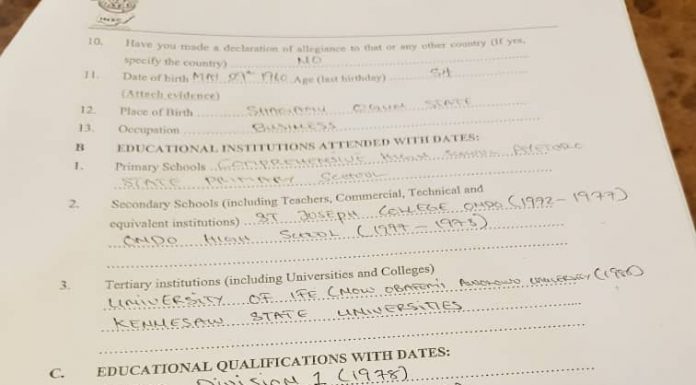 INEC
10. Have you made a declaration of allegiance to that or any other country (If yes,
specify the country) NO
11. Date of birth MAY 29th 1960 Age (last birthday)
(Attech evidence)
12. Place of Birth SHAGAMU OGUN STATE
13. Occupation BUSINESS
B EDUCATIONAL INSTITUTIONS ATTENDED WITH DATES:
1. Primary Schools COMPREHENSIVE HIGH SCHOOL AYETORO
STATE PRIMARY SCHOOL
2. Secondary Schools (including Teachers, Commercial, Technical and
equivalent institutions) ST JOSEPH COLLEGE ONDO (1972 - 1977)
ONDO HIGH SCHOOL
3. Tertiary institutions (including Universities and Colleges)
UNIVERSITY OF IFE (NOW OBAFEMI AWOLOWO UNIVERSITY
KENNESAW STATE UNIVERSITIES
C. EDUCATIONAL QUALIFICATIONS WITH DATES:
DIVISION 1 (1978)